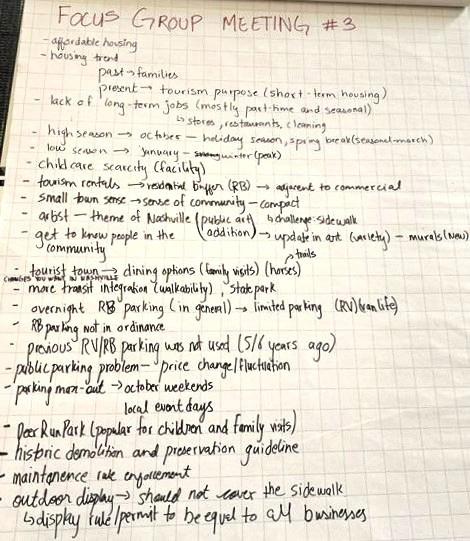 FOCUS GROUP MEETING #3
- affordable housing
- housing trend
past → families
present → tourism purpose (short-term housing)
- lack of long-term jobs (mostly part-time and seasonal)
↳ stores, restaurants, cleaning
- high season → october - holiday season, spring break (seasonal-march)
- low season → january - winter (peak)
- childcare scarcity (facility)
- tourism rentals → residential buffer (RB) → adjacent to commercial
- small town sense → sense of community - compact
- artist - theme of Nashville (public art) ↳ challenge: sidewalk
- get to know people in the (addition) → update in art (variety) - murals (new)
community
trails
- tourist town → dining options (family visits) (horses)
CHANGES YOU WANT IN NASHVILLE
- more transit integration (walkability), state park
- overnight RB parking (in general) → limited parking (RV) (van life)
- RB parking not in ordinance
- previous RV/RB parking was not used (5/6 years ago)
- public parking problem - price change/fluctuation
- parking max-out → october weekends
local event days
- Deer Run Park (popular for children and family visits)
- historic demolition and preservation guideline
- maintanence rule enforcement
- outdoor display → should not cover the sidewalk
↳ display rule/permit to be equal to all businesses